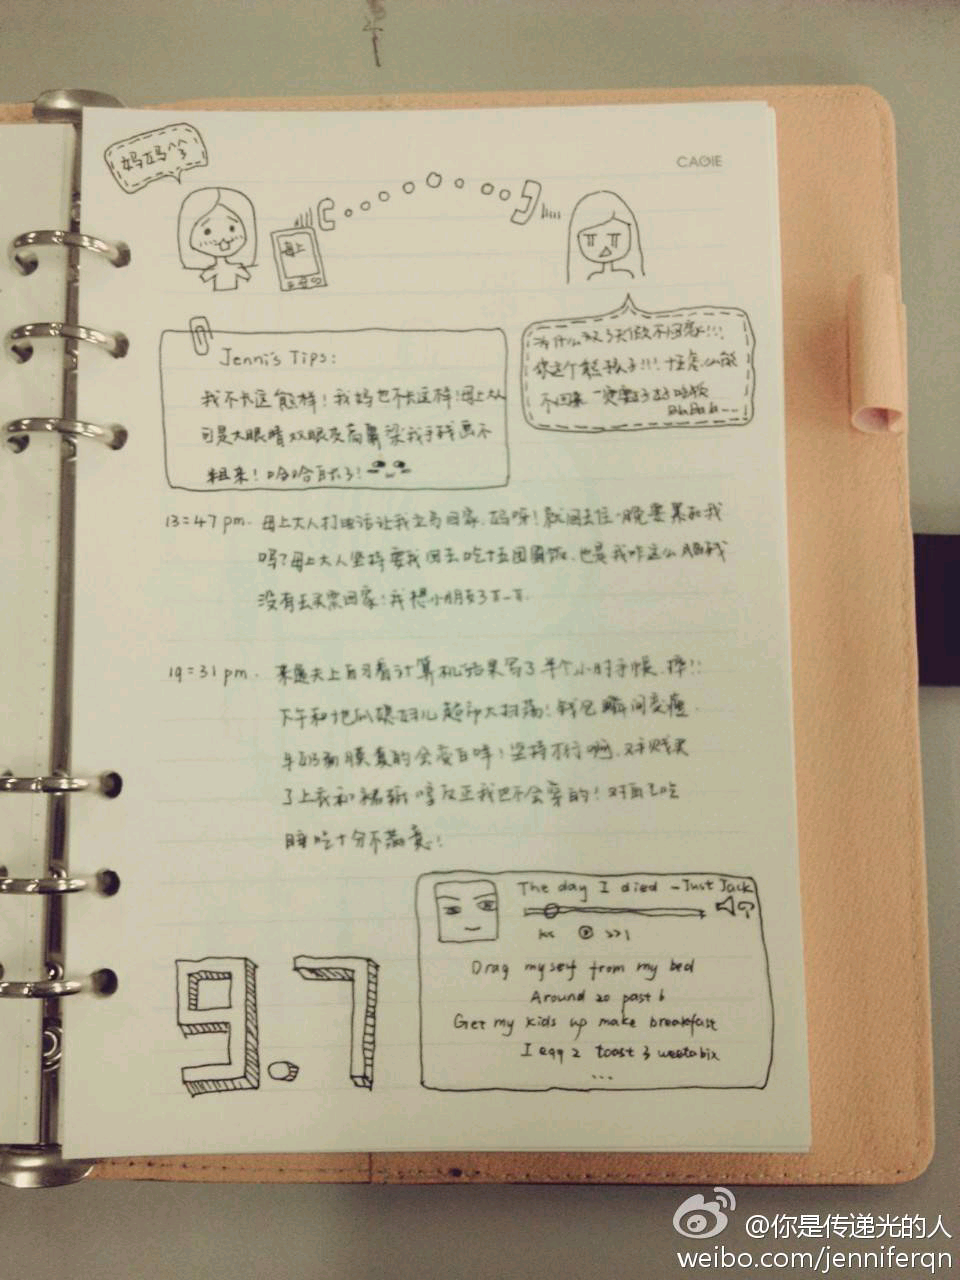 妈妈
CAGIE
母上
为什么放3天假不回家!!!
你这个熊孩子!!! 怎么能
不回来 一定要
BlaBla...
Jenni's Tips:
我不长这熊样！我妈也不长这样！母上大人
可是大眼睛双眼皮高鼻梁我手残画不
粗来！哈哈
13=47 pm. 母上大人打电话让我立马回家.妈呀！就回去住一晚要累和我
吗？母上大人坚持要我回去吃十五团圆饭.也是我咋这么
没有去买票回家！我想小朋友了T_T.
19=31 pm. 某医夫上自习看计算机结果写了半个小时手帐.
下午和地瓜 超市大扫荡！钱包瞬间变瘪
牛奶面膜真的会变白咩！坚持才行啊.
了上衣和裙 反正我也不会穿的！对自己吃
吃十分不满意！
The day I died -Just Jack
Drag myself from my bed
Around 20 past 6
Get my kids up make breakfast
I egg 2 toast 3 weetabix
...
9.7
@你是传递光的人
weibo.com/jenniferqn